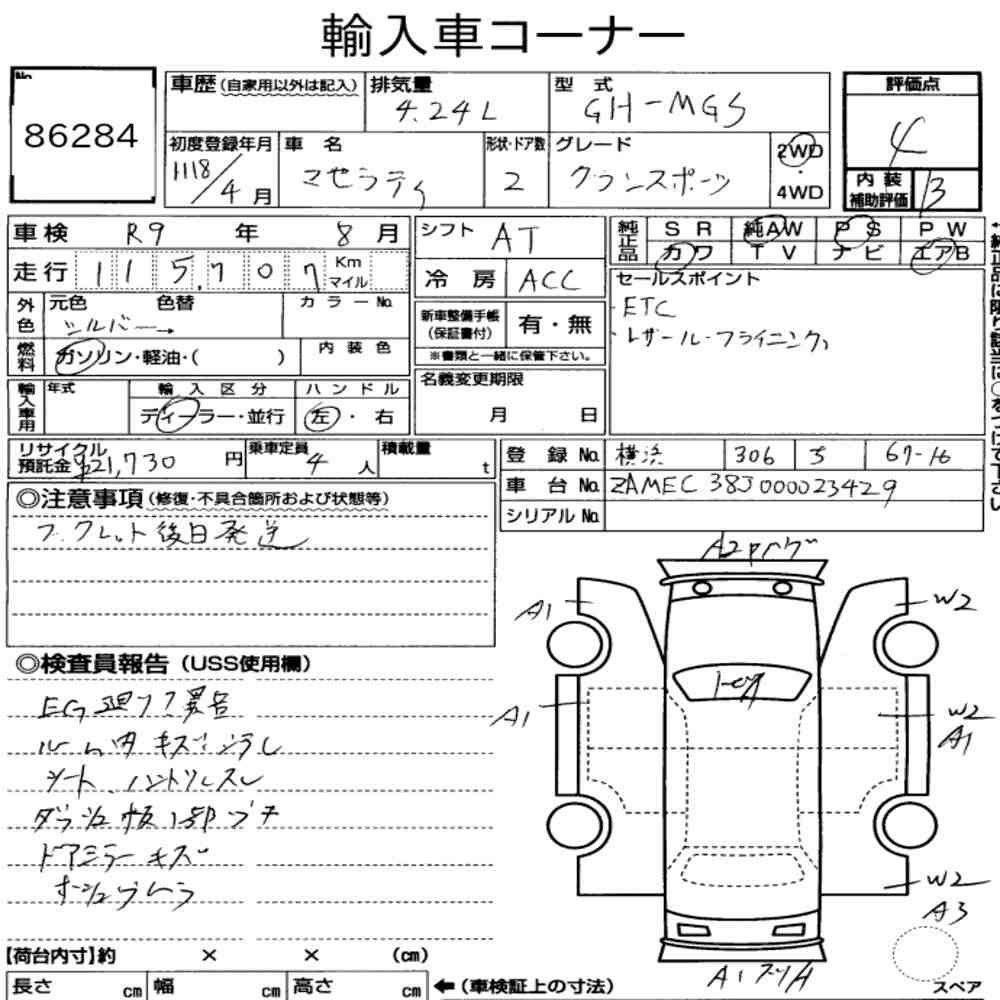 輸入車コーナー
No.
86284
車歴(自家用以外は記入) 排気量 4.24L 型式 GH-MGS
初度登録年月 H18/4月 車名 マセラティ 形状・ドア数 2 グレード グランスポーツ 2WD 4WD
評価点 4
内装補助評価 B
車検 R9年 8月
走行 115,707 Km マイル
外色 元色 シルバー 色替 カラーNo.
燃料 ガソリン・軽油・( ) 内装色
輸入車用 年式 輸入区分 ディーラー・並行 ハンドル 左・右
リサイクル預託金 ¥21,730円 乗車定員 4人 積載量 t
シフト AT
冷房 ACC
新車整備手帳(保証書付) 有・無
※書類と一緒に保管下さい。
名義変更期限 月 日
純正品 SR 純AW PS PW
カワ TV ナビ エアB
セールスポイント
・ETC
・レザール・フライニング
登録No. 横浜 306 5 67-16
車台No. ZAMEC38J000023429
シリアルNo.
◎注意事項(修復・不具合箇所および状態等)
ブックレット後日発送
◎検査員報告(USS使用欄)
EG廻り異音
ルーム内キズ
シート、ハンドルスレ
ダッシュ板1部
ドアミラーキズ
A2
A1
W2
A1
W2
A1
W2
A3
A1
スペア
【荷台内寸】約 × × (cm)
長さ cm 幅 cm 高さ cm ←(車検証上の寸法)